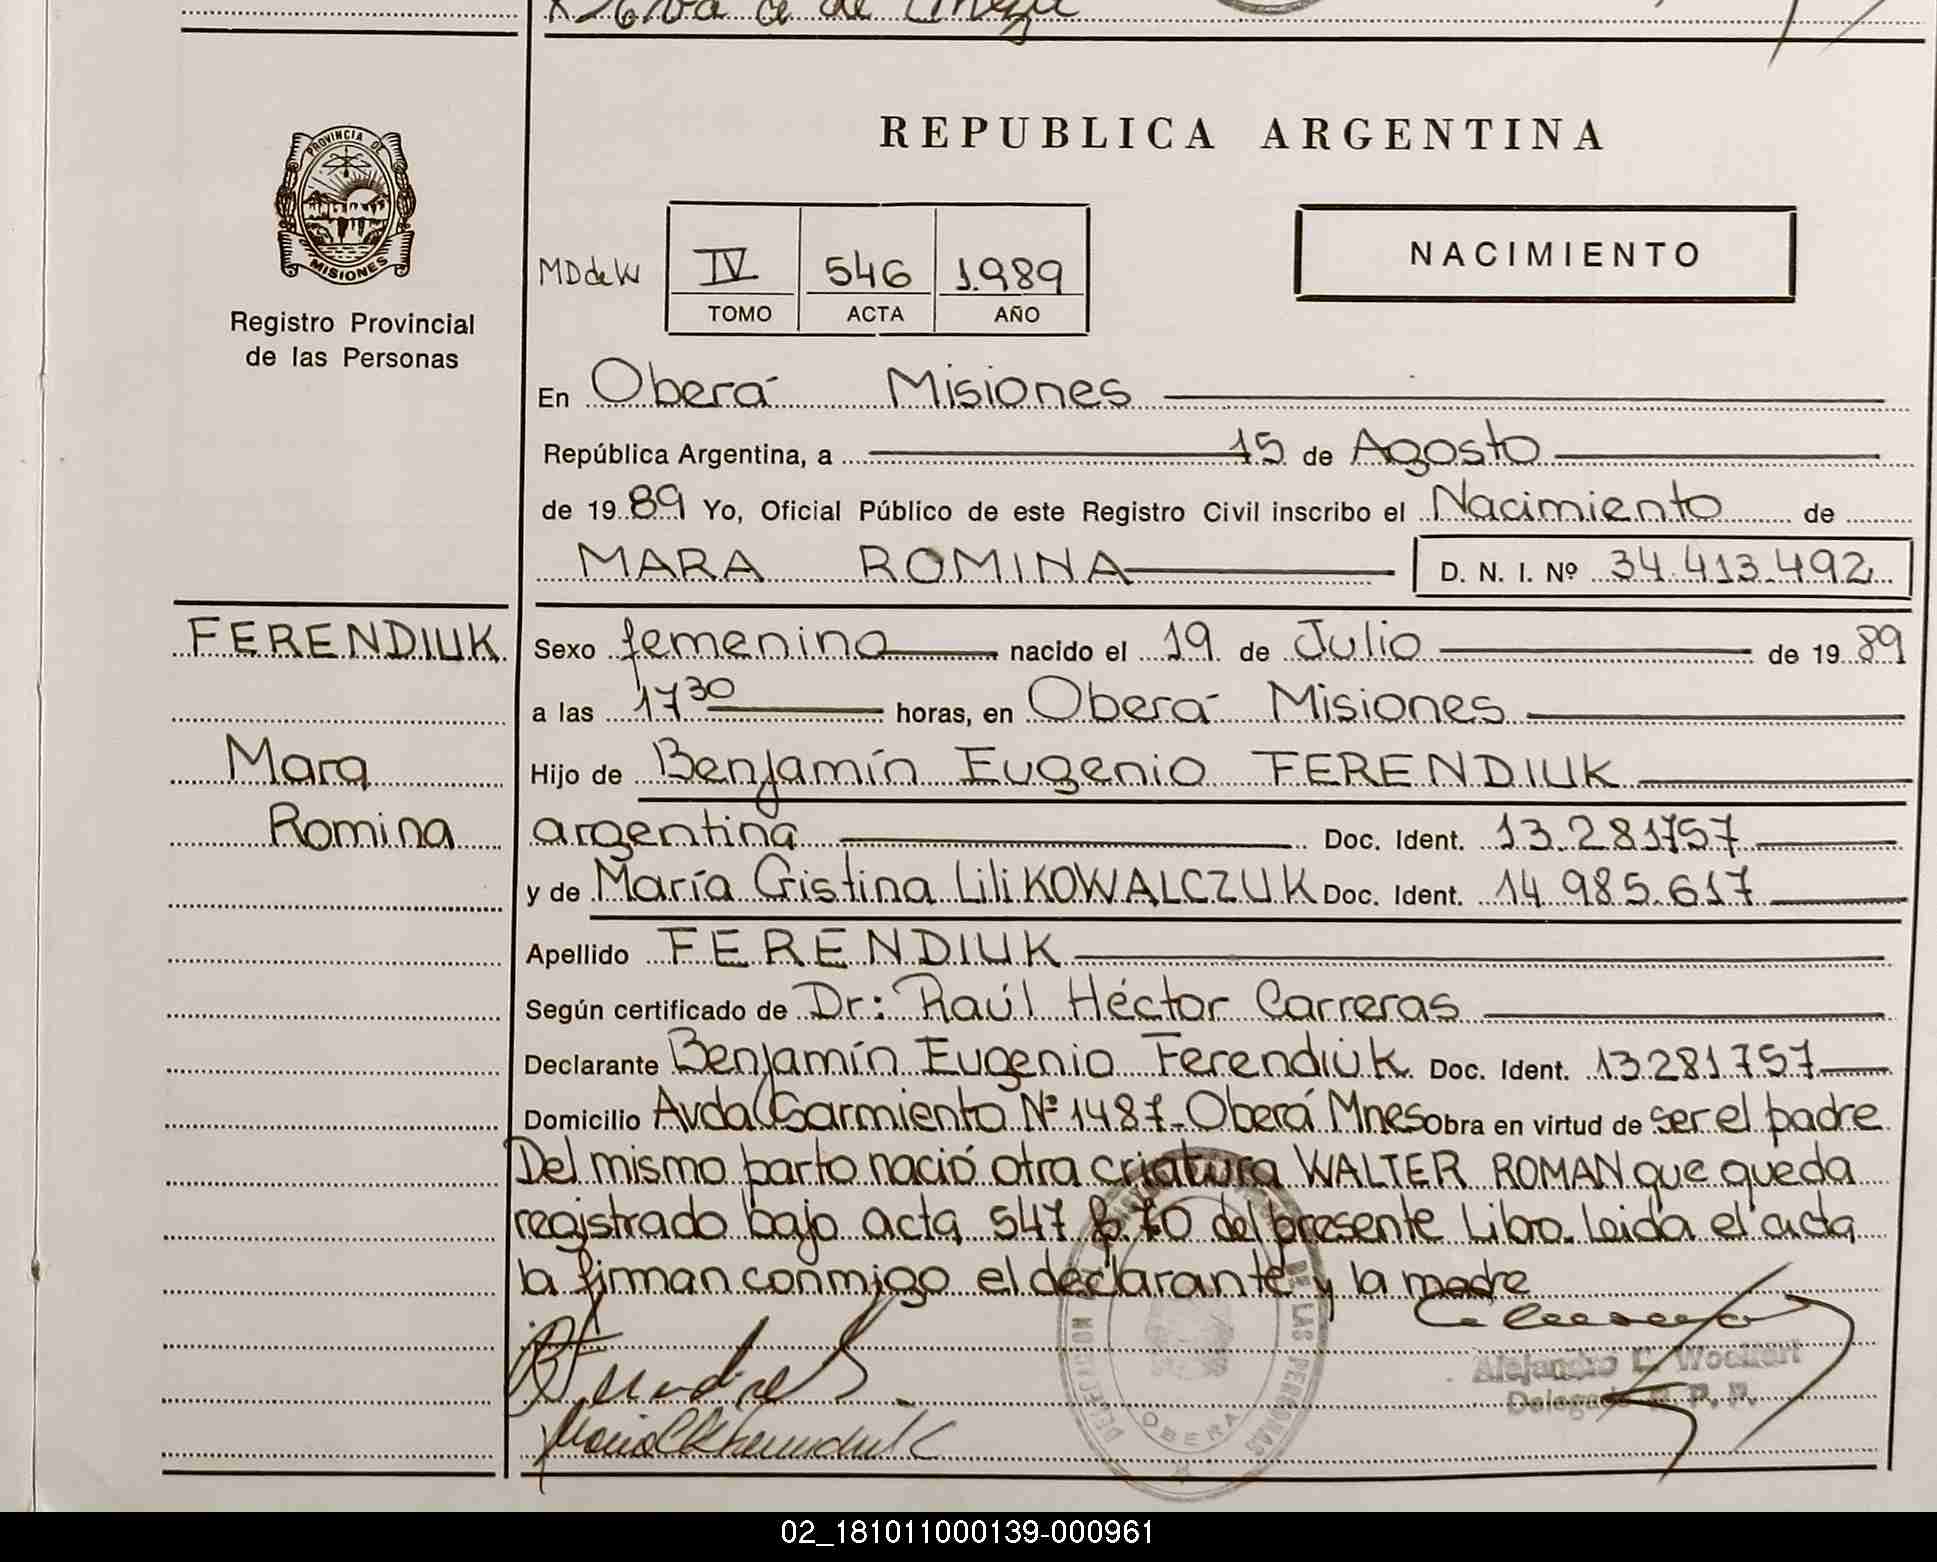 REPUBLICA ARGENTINA
PROVINCIA DE
MISIONES
Registro Provincial
de las Personas
MD de W
IV 546 1.989
TOMO ACTA AÑO
NACIMIENTO
En Oberá Misiones
República Argentina, a 15 de Agosto
de 19 89 Yo, Oficial Público de este Registro Civil inscribo el Nacimiento de
MARA ROMINA D. N. I. Nº 34.413.492
FERENDIUK
Mara
Romina
Sexo femenino nacido el 19 de Julio de 19 89
a las 17 30 horas, en Oberá Misiones
Hijo de Benjamín Eugenio FERENDIUK
argentina Doc. Ident. 13.281757
y de María Cristina Lili KOWALCZUK Doc. Ident. 14.985.617
Apellido FERENDIUK
Según certificado de Dr: Raúl Héctor Carreras
Declarante Benjamín Eugenio Ferendiuk Doc. Ident. 13281757
Domicilio Avda Sarmiento Nº 1487-Oberá Mnes Obra en virtud de ser el padre
Del mismo parto nació otra criatura WALTER ROMAN que queda
registrado bajo acta 547 fº 70 del presente Libro. Leida el acta
la firman conmigo el declarante y la madre
DE LAS PERSONAS
OBERA
Alejandro
Delegado R. P. P.
02_181011000139-000961